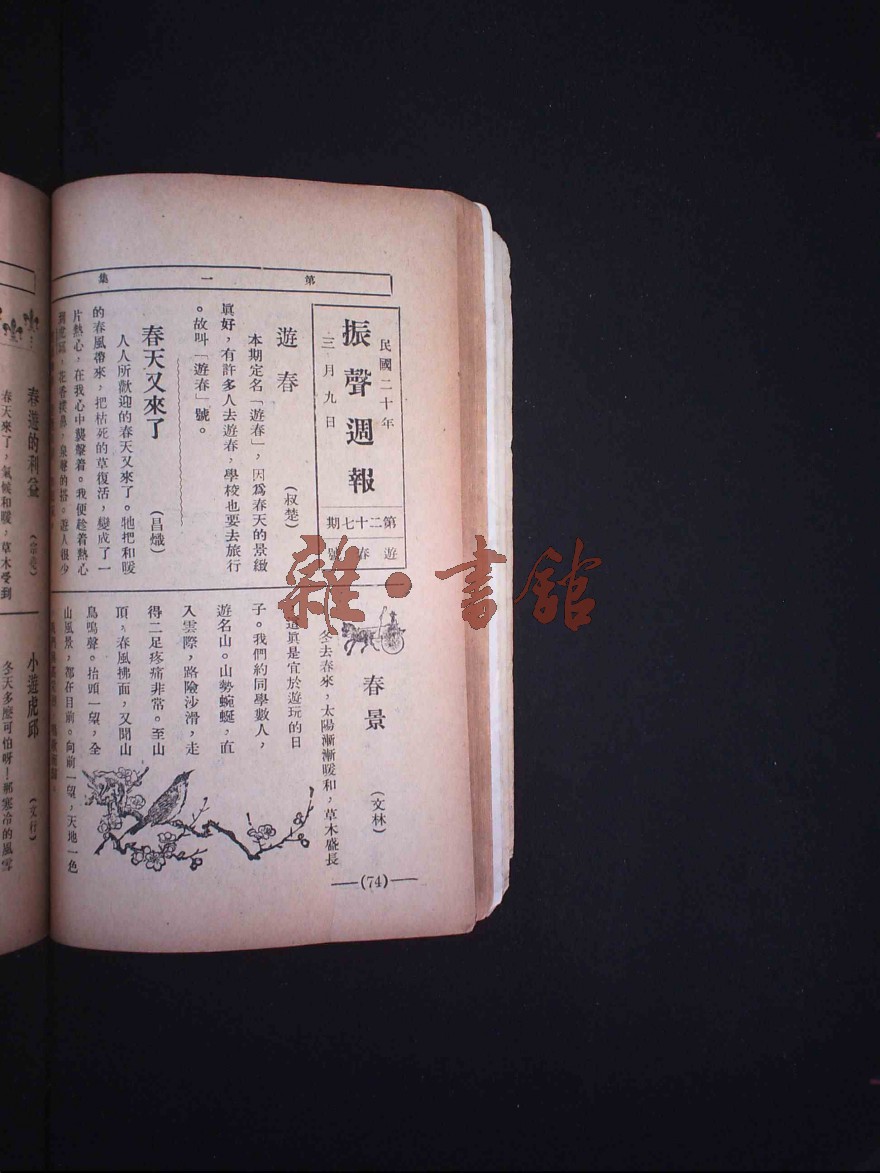 第一集
民國二十年
三月九日
振聲週報
第二十七期
遊春號
遊春
(叔楚)
本期定名「遊春」，因爲春天的景緻
眞好，有許多人去遊春，學校也要去旅行
。故叫「遊春」號。
春天又來了
(昌熾)
人人所歡迎的春天又來了。牠把和暖
的春風帶來，把枯死的草復活，變成了一
片熱心，在我心中襲擊着。我便趁着熱心
花香撲鼻，
的搭。遊人很少
春景
(文林)
冬去春來，太陽漸漸暖和，草木盛長
眞是宜於遊玩的日
子。我們約同學數人，
遊名山。山勢蜿蜒，直
入雲際，路險沙滑，走
得二足疼痛非常。至山
頂，春風拂面，又聞山
鳥鳴聲。抬頭一望，全
山風景，都在目前。向前一望，天地一色
(74)
春遊的利益
春天來了，氣候和暖，草木受到
小遊虎邱
(文行)
冬天多麼可怕呀！那寒冷的風雪
雜·書館